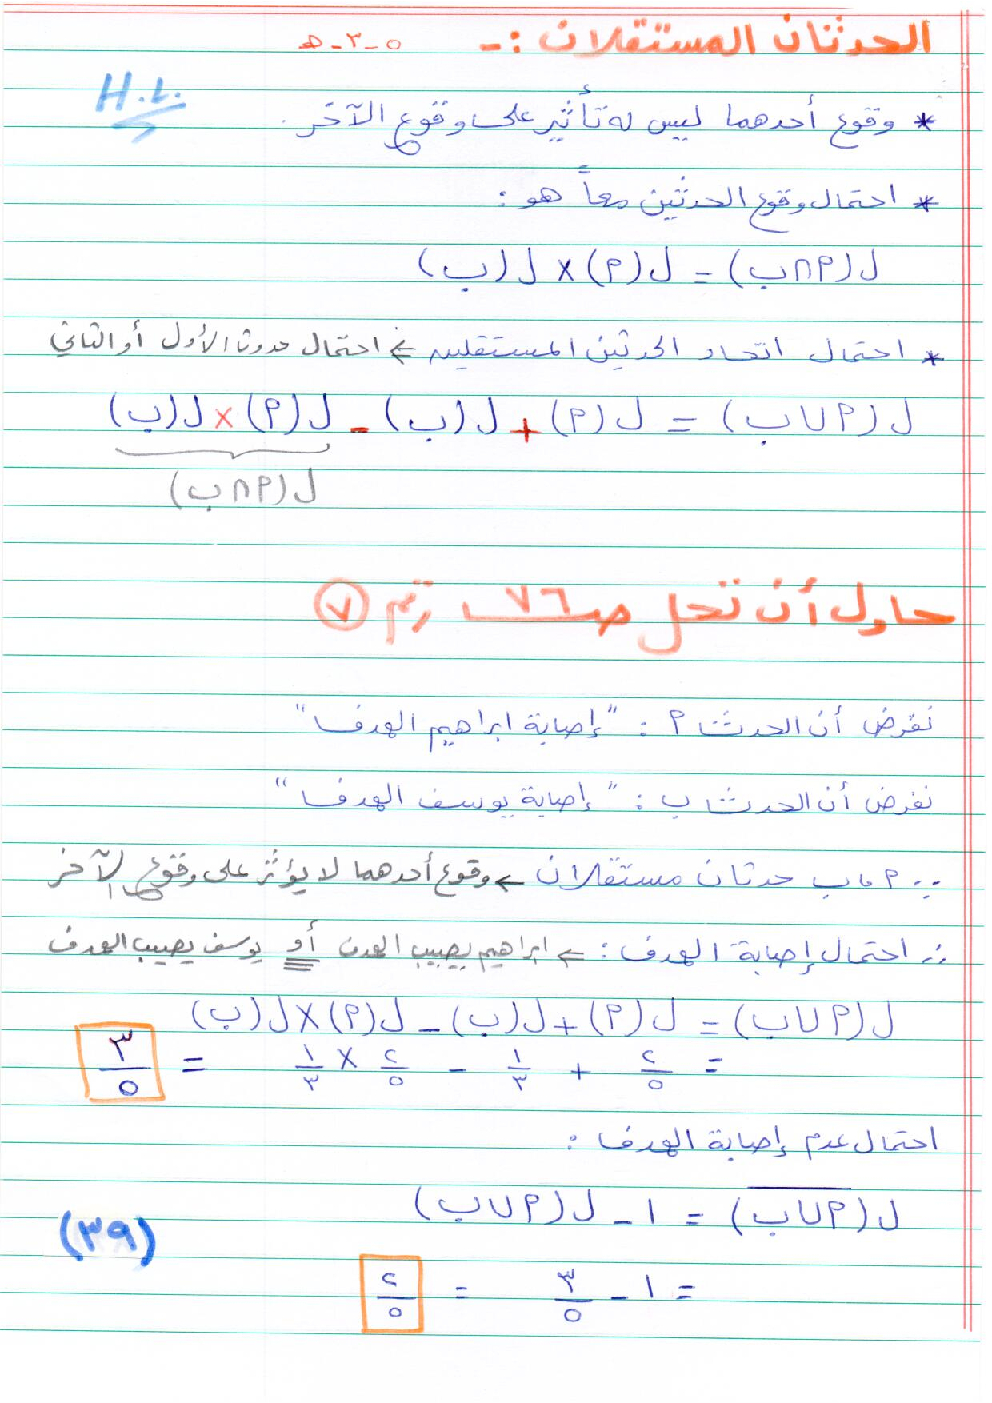 الحدثان المستقلان :- ٥-٣-هـ
H.L.
* وقوع أحدهما ليس له تأثير على وقوع الآخر.
* احتمال وقوع الحدثين معاً هو :
ل(٩∩ب) = ل(٩) × ل(ب)
* احتمال اتحاد الحدثين المستقلين ← احتمال حدوث الأول أو الثاني
ل(٩∪ب) = ل(٩) + ل(ب) - ل(٩) × ل(ب)
ل(٩∩ب)
حاول أن تحل صـ ٧٦ رقم (٧)
نفرض أن الحدث ٩ : "إصابة ابراهيم الهدف"
نفرض أن الحدث ب : "إصابة يوسف الهدف"
∵ ٩ ، ب حدثان مستقلان ← وقوع أحدهما لا يؤثر على وقوع الآخر
∴ احتمال إصابة الهدف : ← ابراهيم يصيب الهدف أو يوسف يصيب الهدف
ل(٩∪ب) = ل(٩) + ل(ب) - ل(٩) × ل(ب)
= ٢/٥ + ١/٣ - ٢/٥ × ١/٣ = ٣/٥
احتمال عدم إصابة الهدف :
ل(٩∪ب) = ١ - ل(٩∪ب)
= ١ - ٣/٥ = ٢/٥
(٣٩)